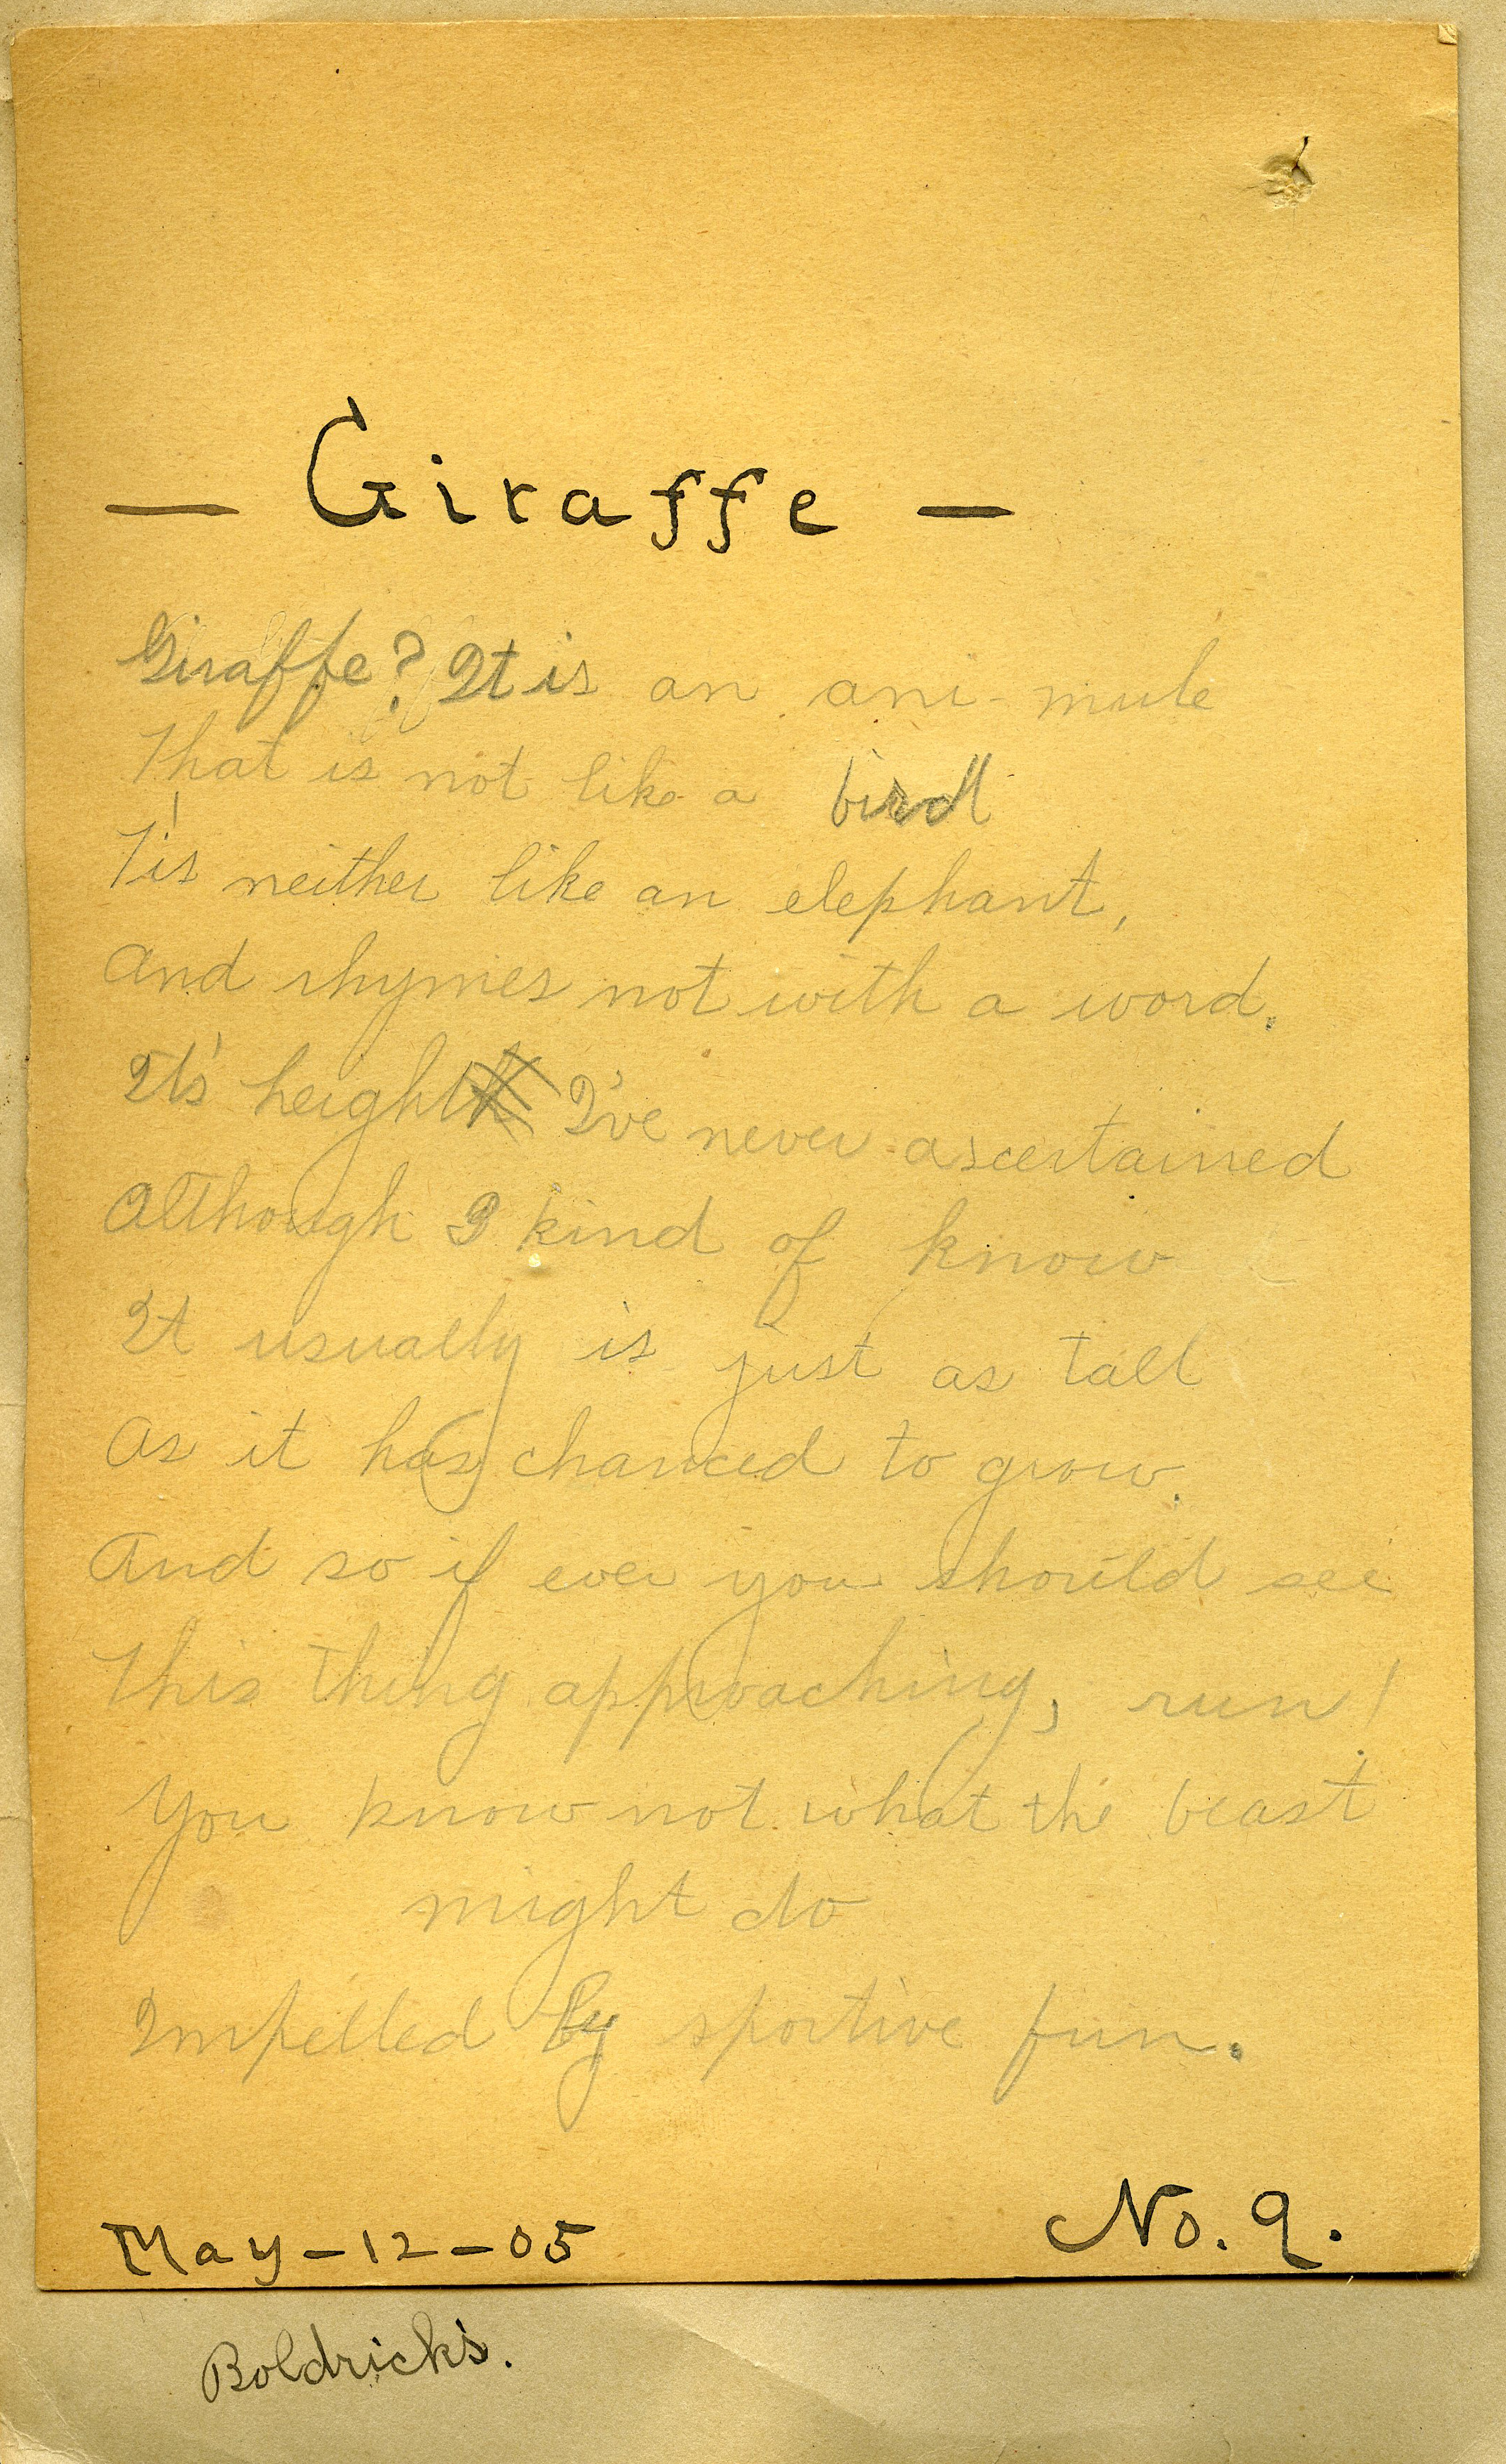 — Giraffe —
Giraffe? It is an ani-mule
That is not like a bird
T'is neither like an elephant,
And rhymes not with a word.
It's height I've never ascertained
Although I kind of know
It usually is just as tall
As it has chanced to grow.
And so if ever you should see
This thing approaching, run!
You know not what the beast
might do
Impelled by sportive fun.
May-12-05
No. 9.
Boldrick's.